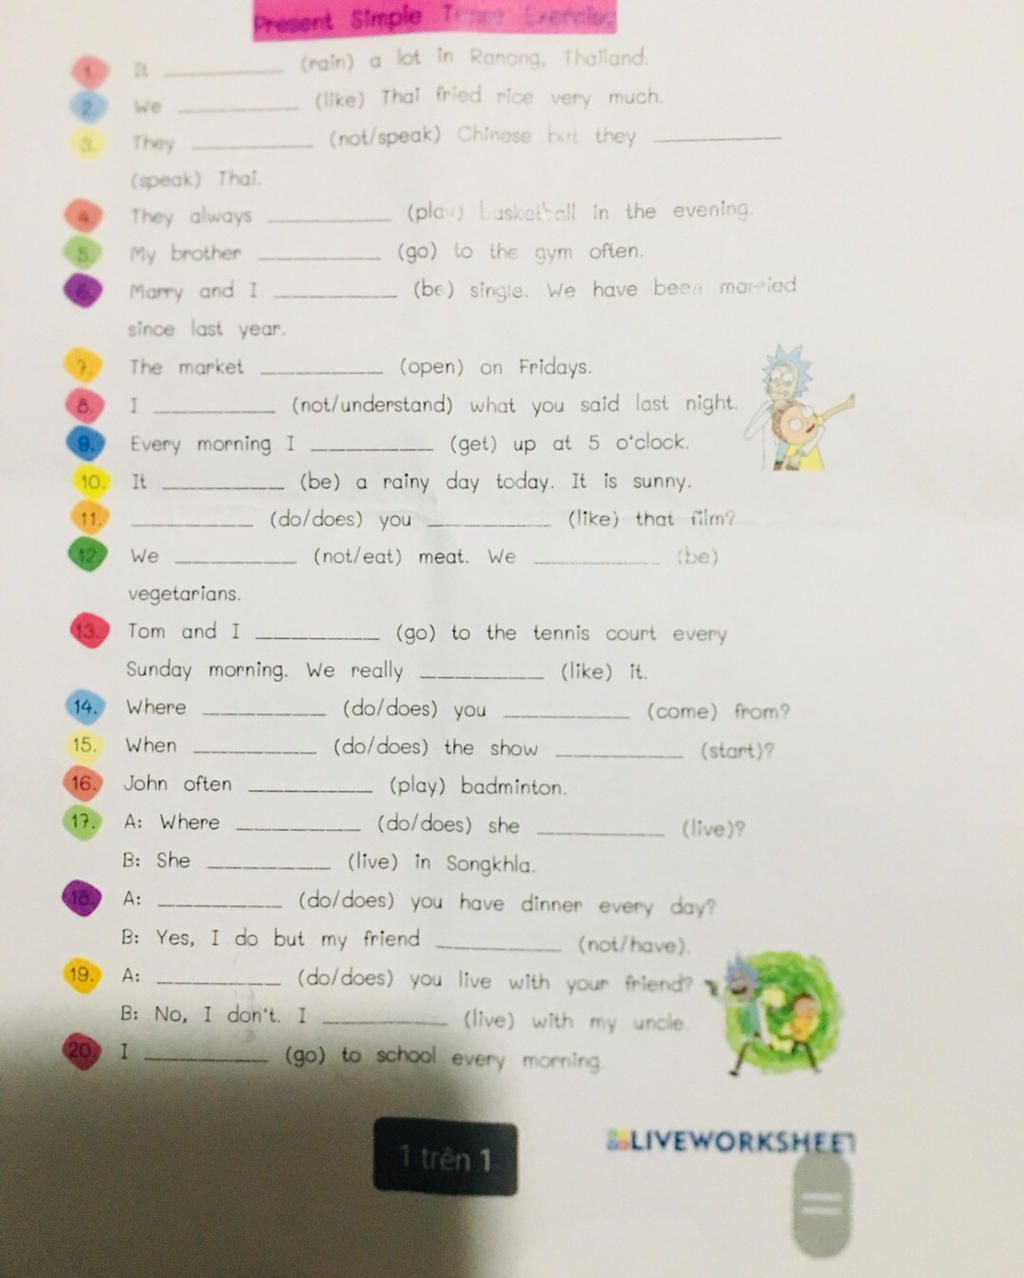 Present Simple Tense Exercise
1. It __________ (rain) a lot in Ranong, Thailand.
2. We __________ (like) Thai fried rice very much.
3. They __________ (not/speak) Chinese but they __________
(speak) Thai.
4. They always __________ (play) basketball in the evening.
5. My brother __________ (go) to the gym often.
6. Marry and I __________ (be) single. We have been married
since last year.
7. The market __________ (open) on Fridays.
8. I __________ (not/understand) what you said last night.
9. Every morning I __________ (get) up at 5 o'clock.
10. It __________ (be) a rainy day today. It is sunny.
11. __________ (do/does) you __________ (like) that film?
12. We __________ (not/eat) meat. We __________ (be)
vegetarians.
13. Tom and I __________ (go) to the tennis court every
Sunday morning. We really __________ (like) it.
14. Where __________ (do/does) you __________ (come) from?
15. When __________ (do/does) the show __________ (start)?
16. John often __________ (play) badminton.
17. A: Where __________ (do/does) she __________ (live)?
B: She __________ (live) in Songkhla.
18. A: __________ (do/does) you have dinner every day?
B: Yes, I do but my friend __________ (not/have).
19. A: __________ (do/does) you live with your friend?
B: No, I don't. I __________ (live) with my uncle.
20. I __________ (go) to school every morning.
1 trên 1
LIVEWORKSHEET